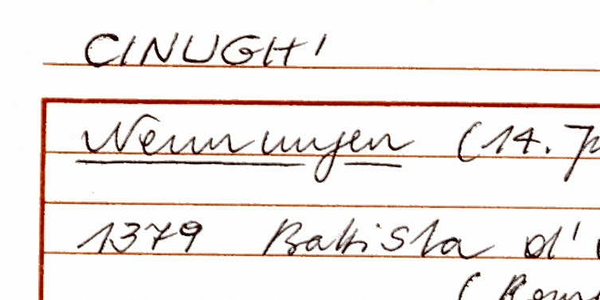 CINUGHI
Nennungen (14.
1379 Battista d'